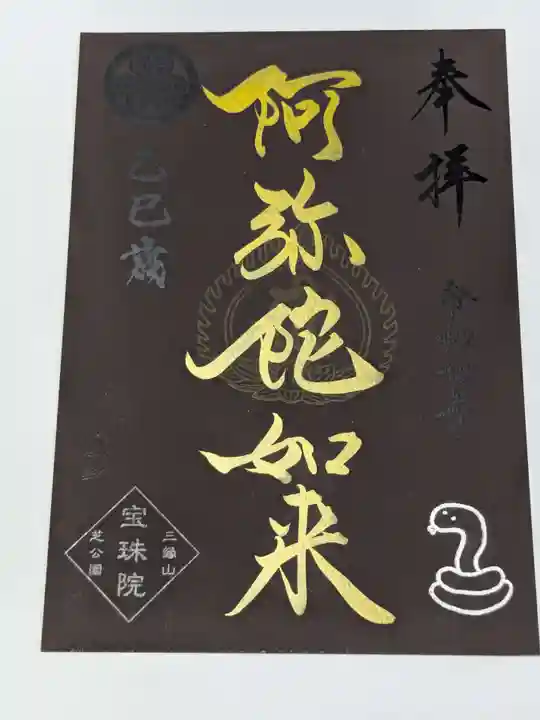 奉拝
阿弥陀如来
乙巳歳
三縁山
宝珠院
芝公園